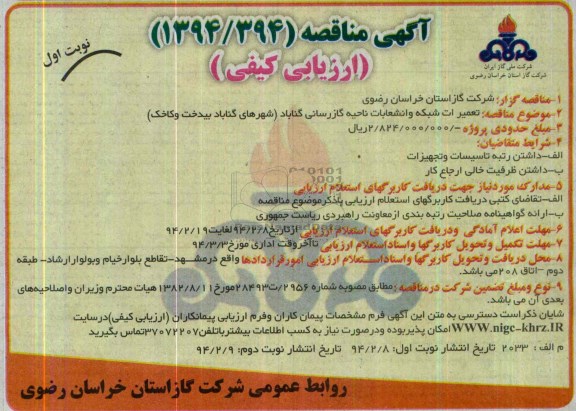 آگهی مناقصه (۱۳۹۴/۳۹۴)
(ارزیابی کیفی)
نوبت اول
شرکت ملی گاز ایران
شرکت گاز استان خراسان رضوی
۱-مناقصه گزار: شرکت گازاستان خراسان رضوی
۲-موضوع مناقصه: تعمیر ات شبکه وانشعابات ناحیه گازرسانی گناباد (شهرهای گناباد بیدخت وکاخک)
۳-مبلغ حدودی پروژه -/۲/۸۲۴/۰۰۰/۰۰۰ریال
۴-شرایط متقاضیان:
الف-داشتن رتبه تاسیسات وتجهیزات
ب-داشتن ظرفیت خالی ارجاع کار
۵-مدارک موردنیاز جهت دریافت کاربرگهای استعلام ارزیابی
الف-تقاضای کتبی دریافت کاربرگهای استعلام ارزیابی باذکرموضوع مناقصه
ب-ارائه گواهینامه صلاحیت رتبه بندی ازمعاونت راهبردی ریاست جمهوری
۶-مهلت اعلام آمادگی ودریافت کاربرگهای استعلام ارزیابی ازتاریخ۹۴/۲/۸لغایت۹۴/۲/۱۹
۷-مهلت تکمیل وتحویل کاربرگها واسناداستعلام ارزیابی تاآخروقت اداری مورخ۹۴/۳/۲
۸-محل دریافت وتحویل کاربرگها واسناداستعلام ارزیابی امورقراردادها واقع درمشهد-تقاطع بلوارخیام وبلوارارشاد- طبقه
دوم -اتاق ۲۰۸می باشد.
۹-نوع ومبلغ تضمین شرکت درمناقصه:مطابق مصوبه شماره ۲۹۵۶/ت۲۸۴۹۳مورخ۱۳۸۲/۸/۱۱ هیات محترم وزیران واصلاحیه‌های
بعدی آن می باشد.
شایان ذکراست دسترسی به متن این آگهی فرم مشخصات پیمان کاران وفرم ارزیابی پیمانکاران (ارزیابی کیفی)درسایت
WWW.nigc-khrz.IRامکان پذیربوده ودرصورت نیاز به کسب اطلاعات بیشترباتلفن۳۷۰۷۲۲۰۷تماس بگیرید
م الف : ۲۰۳۳ تاریخ انتشار نوبت اول: ۹۴/۲/۸ تاریخ انتشار نوبت دوم: ۹۴/۲/۹
روابط عمومی شرکت گازاستان خراسان رضوی